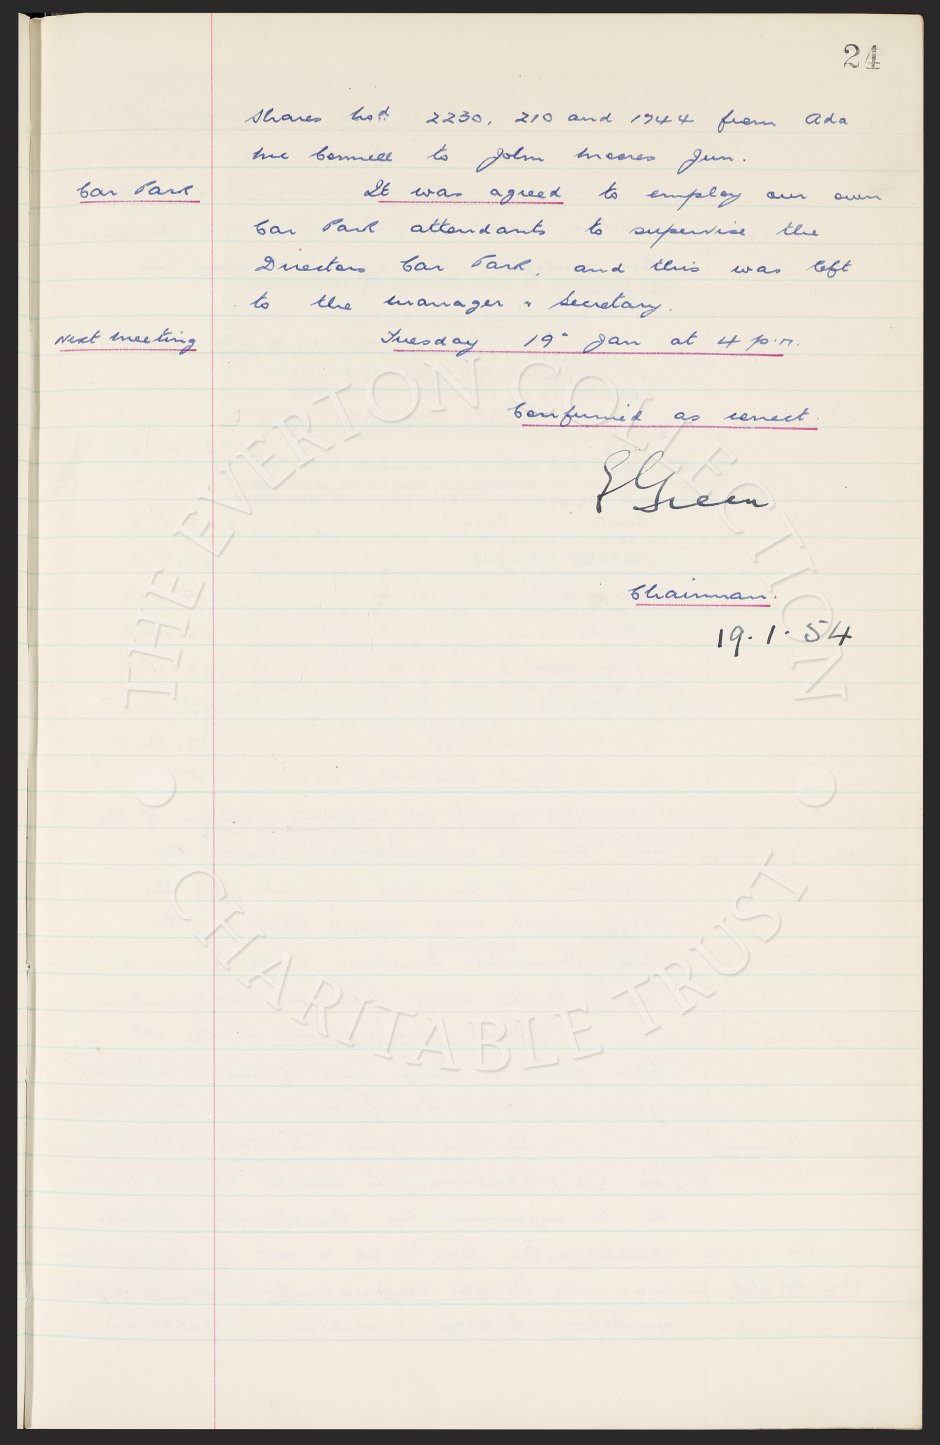 24
Shares Nos. 2230, 210 and 1944 from Ada
Mc Connell to John Moores Jun.
Car Park It was agreed to employ our own
Car Park attendants to supervise the
Directors Car Park, and this was left
to the Manager & Secretary.
Next Meeting Tuesday 19" Jan at 4 p.m.
Confirmed as correct.
E Green
Chairman.
19.1.54
THE EVERTON COLLECTION
CHARITABLE TRUST